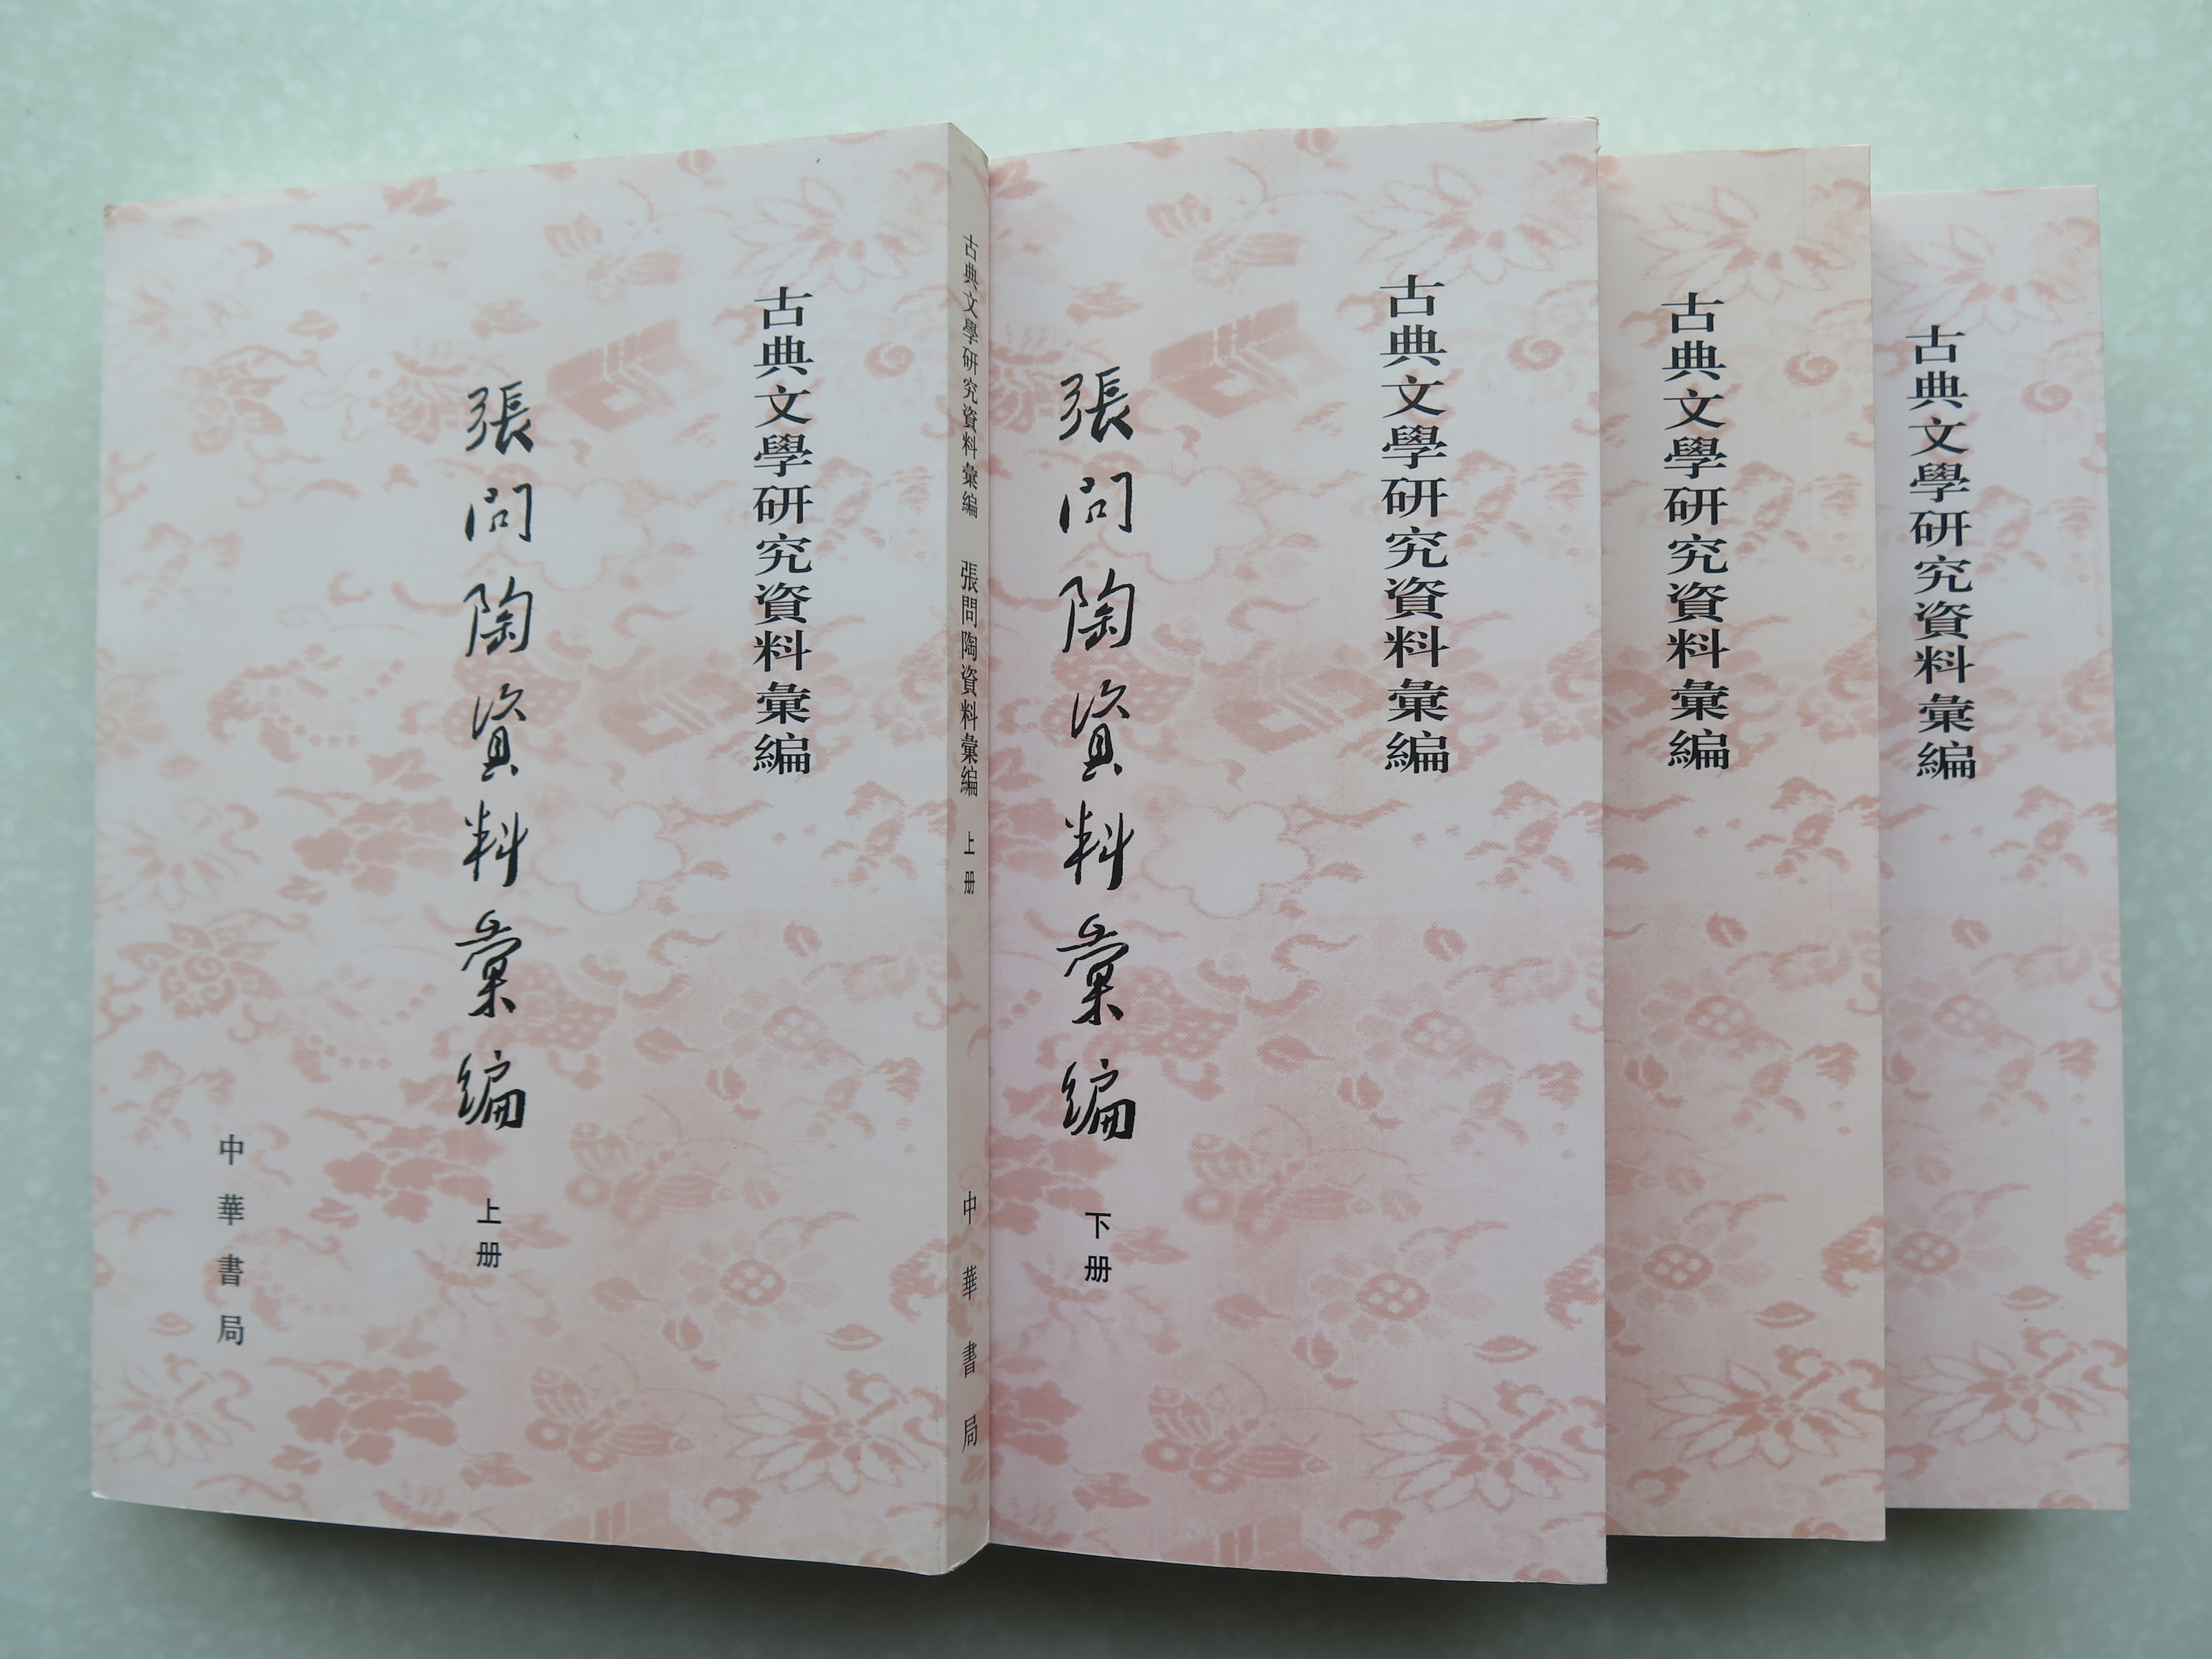 古典文學研究資料彙編
張問陶資料彙編
上册
中華書局
古典文學研究資料彙編 張問陶資料彙編 上册 中華書局
古典文學研究資料彙編
張問陶資料彙編
下册
古典文學研究資料彙編
古典文學研究資料彙編